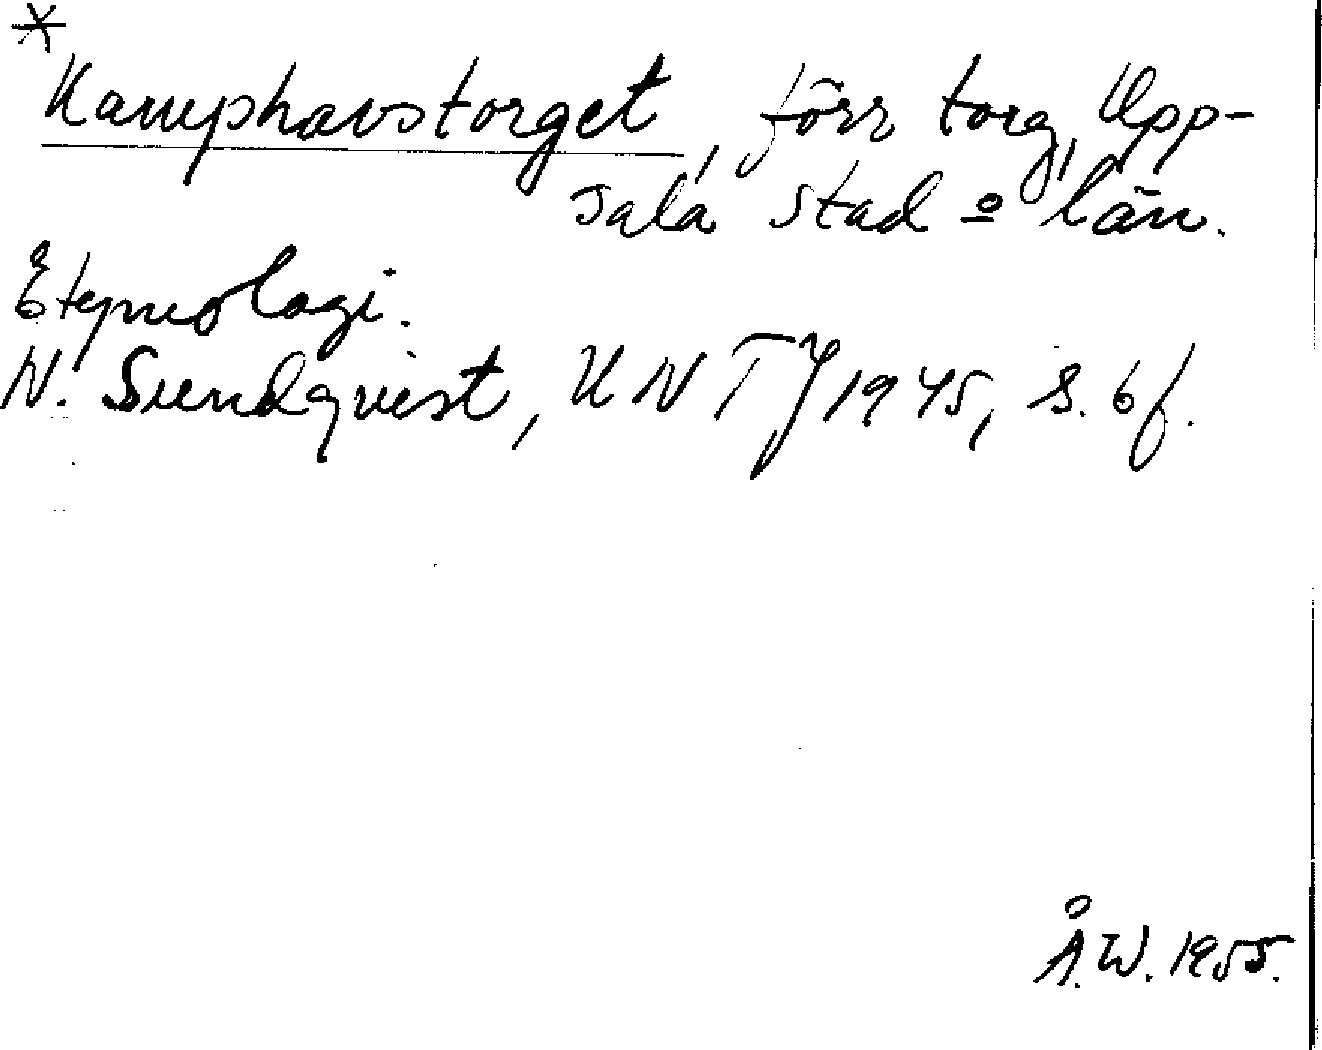 *
Kamphavstorget, förr torg, Upp-
sala stad o län.
Etymologi.
N. Sundqvist, UNTJ 1945, s. 6 f.
Å.W. 1955.